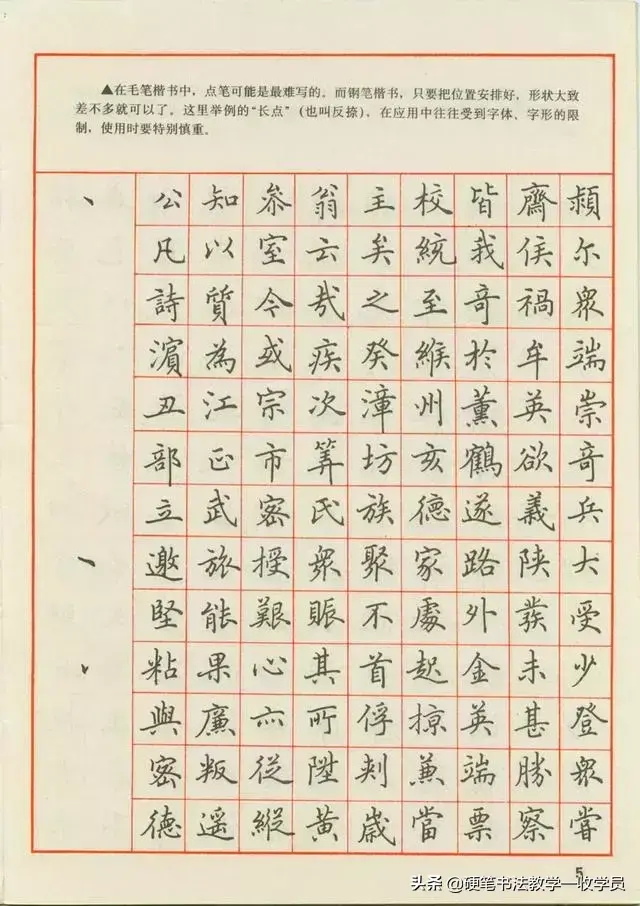 ▲在毛笔楷书中，点笔可能是最难写的。而钢笔楷书，只要把位置安排好，形状大致
差不多就可以了。这里举例的“长点”（也叫反捺），在应用中往往受到字体、字形的限
制，使用时要特别慎重。
公知叅翁主校皆齋頻
凡以室云矣統我侯尔
詩質令哉之至奇禍眾
濱為或疾癸維於牟端
丑江宗次漳州薰英崇
部正市筭坊亥鶴欲奇
立武密氏族德遂義兵
邀旅授眾聚家路陕大
堅能艱賑不處外蕟受
粘果心其首起金未少
與廉亦所俘掠英甚登
密叛従陞刾兼端勝眾
德遥縱黄歳當票察嘗
5
头条 @硬笔书法教学一收学员